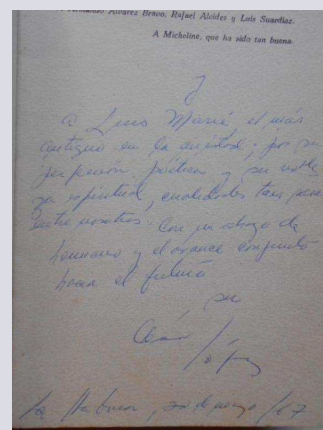 Armando Alvarez Bravo, Rafael Alcides y Luis Suardíaz.
A Micheline, que ha sido tan buena
y
a Luis Marré el más
antiguo en la amistad; por su
perfección poética y su noble
za espiritual, cualidades tan
entre nosotros. Con un abrazo de
hermano y el avance conjunto
hacia el futuro
su
César López
La Habana, de mayo /67